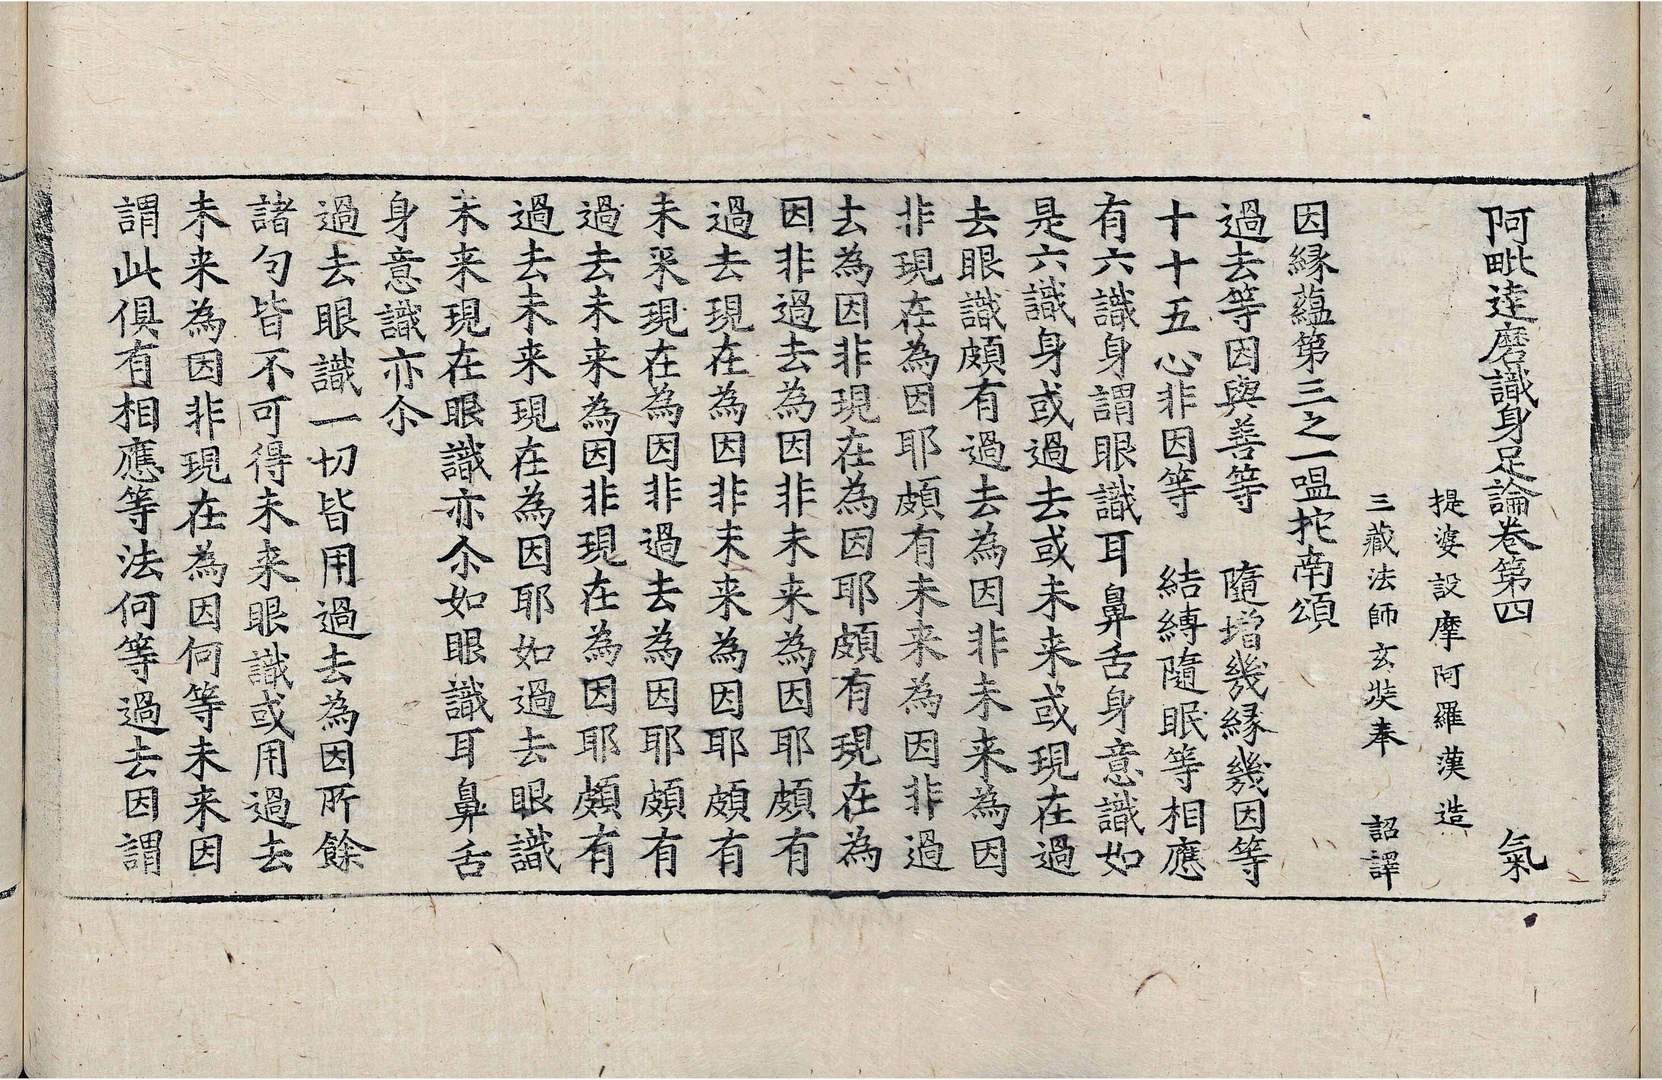 阿毗達磨識身足論卷第四 氣
提婆設摩阿羅漢 造
三藏法師玄奘奉 詔譯
因緣蘊第三之一嗢拕南頌
過去等因與善等 隨增幾緣幾因等
十十五心非因等 結縛隨眠等相應
有六識身謂眼識耳鼻舌身意識如
是六識身或過去或未来或現在過
去眼識頗有過去為因非未来為因
非現在為因耶頗有未来為因非過
去為因非現在為因耶頗有現在為
因非過去為因非未来為因耶頗有
過去現在為因非未来為因耶頗有
未来現在為因非過去為因耶頗有
過去未来為因非現在為因耶頗有
過去未来現在為因耶如過去眼識
未来現在眼識亦尒如眼識耳鼻舌
身意識亦尒
過去眼識一切皆用過去為因所餘
諸句皆不可得未来眼識或用過去
未来為因非現在為因何等未来因
謂此俱有相應等法何等過去因謂